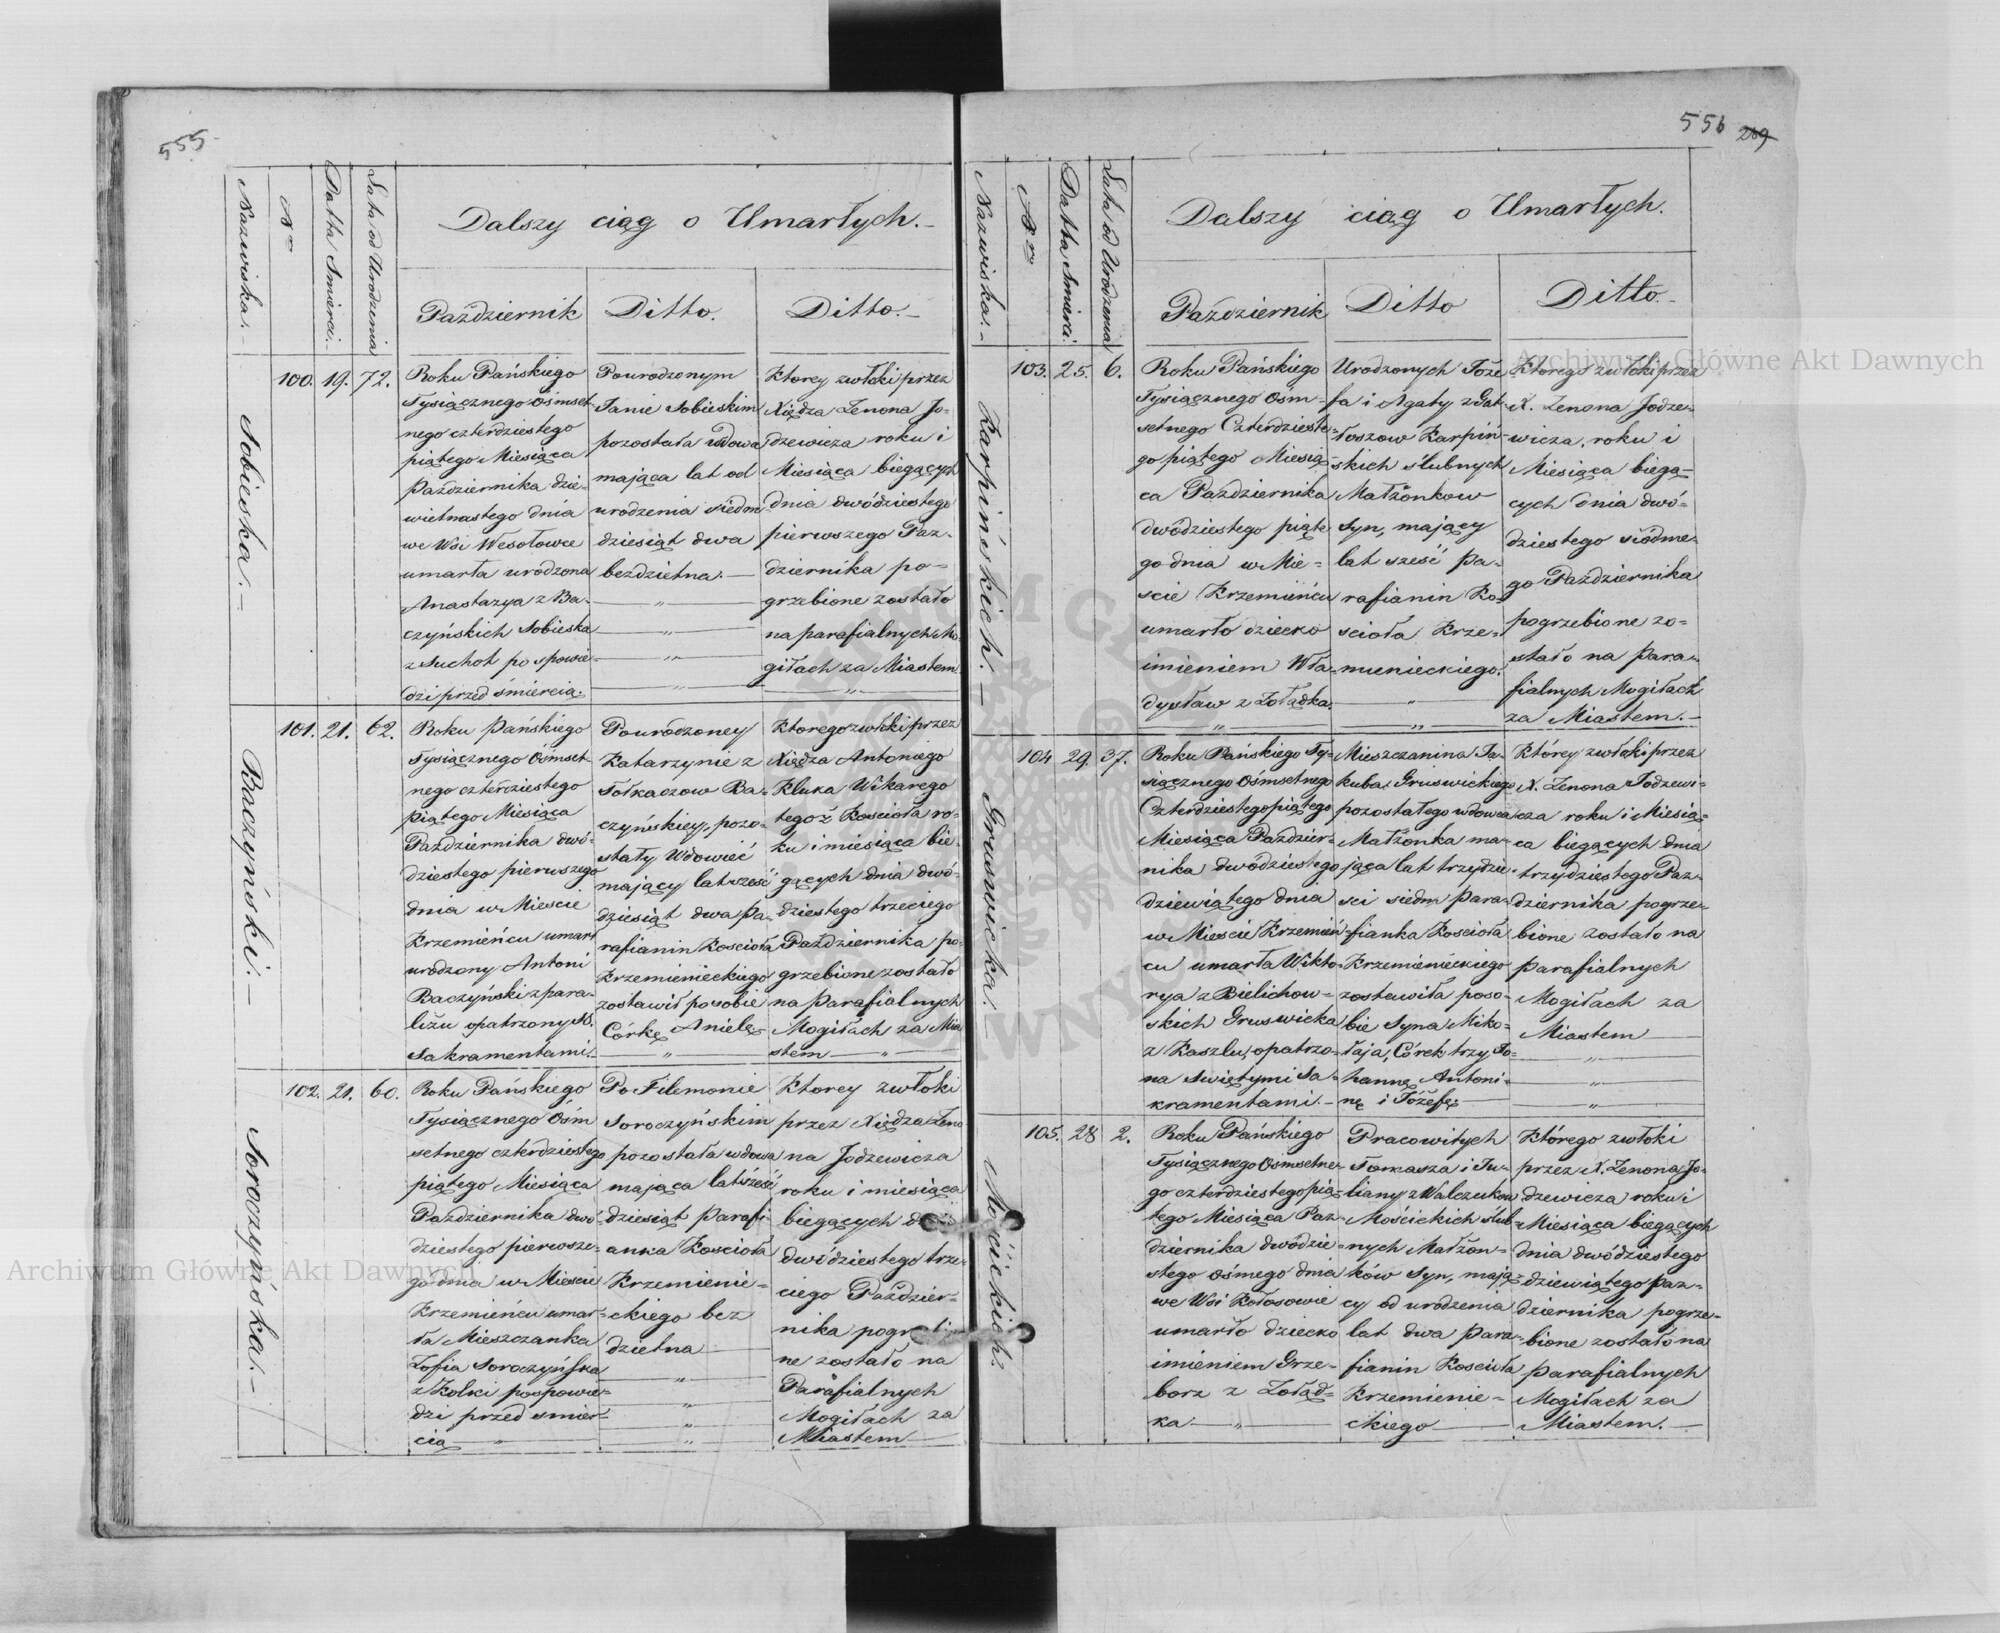 555
Nazwiska.
Nro
Datta Smierci.
Lata od Urodzenia
Dalszy ciąg o Umarłych.
Październik
Ditto.
Ditto.
Sobieska.
100. 19. 72.
Roku Pańskiego
Tysiącznego Ośmset-
nego czterdziestego
piątego Miesiąca
Października dzie-
wietnastego dnia
we Wsi Wesołowce
umarła urodzona
Anastazya z Ba-
czyńskich Sobieska
z Suchot po spowie-
dzi przed śmiercią.
Pourodzonym
Janie Sobieskim
pozostała wdowa
mająca lat od
urodzenia siedm
dziesiąt dwa
bezdzietna.
Ktorey zwłoki przez
Xiędza Zenona Jo-
dzewicza roku i
Miesiąca biegących
dnia dwódziestego
pierwszego Paz-
dziernika po-
grzebione zostało
na parafialnych Mo-
giłach za Miastem
Baczyński.
101. 21. 62.
Roku Pańskiego
Tysiącznego Ośmset-
nego czterdziestego
piątego Miesiąca
Października dwó-
dziestego pierwszego
dnia w Miescie
Krzemieńcu umarł
urodzony Antoni
Baczyński z para-
liżu opatrzony SS.
Sakramentami.
Pourodzoney
Katarzynie z
Tołkaczow Ba-
czyńskiey, pozo-
stały Wdowieć
mający lat sześć
dziesiąt dwa Pa-
rafianin Kościoła
Krzemienieckiego
zostawił posobie
Córkę Anielę
Ktorego zwłoki przez
Xiędza Antoniego
Kluka Wikarego
tegoż Kościoła ro-
ku i miesiąca bie-
gących dnia dwó-
dziestego trzeciego
Października po-
grzebione zostało
na Parafialnych
Mogiłach za Mia
stem
Soroczyńska.
102. 21. 60.
Roku Pańskiego
Tysiącznego Ośm
setnego czterdziestego
piątego Miesiąca
Października dwó-
dziestego pierwsze-
go dnia w Miescie
Krzemieńcu umar-
ła Mieszczanka
Zofia Soroczyńska
z Kolki pospowie-
dzi przed smier-
cią
Po Filemonie
Soroczyńskim
pozostała wdowa
mająca lat sześć
dziesiąt Parafi-
anka Kościoła
Krzemienie-
ckiego bez
dzietna
Ktorey zwłoki
przez Xiędza Zeno
na Jodzewicza
roku i miesiąca
biegących
dwódziestego trze-
ciego Paździer-
nika
ne zostało na
Parafialnych
Mogiłach za
Miastem
556 289
Nazwiska.
Nro
Datta Smierci
Lata od Urodzenia
Dalszy ciąg o Umarłych.
Październik
Ditto
Ditto.
Karpińskich.
103. 25. 6.
Roku Pańskiego
Tysiącznego Ośm-
setnego Czterdzieste-
go piątego Miesią-
ca Października
dwódziestego piąte
go dnia w Mie-
scie Krzemieńcu
umarło dziecko
imieniem Wła-
dysław z Żołądka.
Urodzonych Józe
fa i Agaty z Gat-
łoszow Karpiń-
skich ślubnych
Małżonkow
Syn, mający
lat sześć Pa-
rafianin Ko-
scioła Krze-
mienieckiego.
Ktorego zwłoki przez
X. Zenona Jodze-
wicza, roku i
Miesiąca biegą-
cych dnia dwó-
dziestego siódme-
go Października
pogrzebione zo-
stało na Para-
fialnych Mogiłach
za Miastem.
Gruswicka.
104 29. 37.
Roku Pańskiego Ty-
siącznego Ośmsetnego
Czterdziestego piątego
Miesiąca Paździer-
nika dwódziestego
dziewiątego dnia
w Miescie Krzemień-
cu umarła Wikto-
rya z Bielichow-
skich Gruswicka
z Kaszlu, opatrzo-
na Swiętymi Sa-
kramentami.
Mieszczanina Ja-
kuba Gruswickiego
pozostałego wdowca
Małżonka ma-
jąca lat trzydzie-
sci siedm Para-
fianka Kościoła
Krzemienieckiego
zostawiła poso-
bie Syna Miko-
łaja, Córek trzy Jo-
hannę, Antoni-
nę i Józefę
Którey zwłoki przez
X. Zenona Jodzewi-
cza roku i Miesią-
ca biegących dnia
trzydziestego Paz-
dziernika, pogrze-
bione zostało na
Parafialnych
Mogiłach za
Miastem
Mościckich.
105. 28 2.
Roku Pańskiego
Tysiącznego Ośmsetne-
go czterdziestego pią-
tego Miesiąca Paz-
dziernika dwódzie-
stego ósmego dnia
we Wsi Kołosowie
umarło dziecko
imieniem Grze-
borz z Żołąd-
ka
Pracowitych
Tomasza i Ju-
liany z Walczukow
Mościckich ślub-
nych Małżon-
ków Syn, mają-
cy od urodzenia
lat dwa Para-
fianin Kościoła
Krzemienie-
ckiego
Którego zwłoki
przez X. Zenona Jo-
dzewicza roku i
Miesiąca biegących
dnia dwódziestego
dziewiątego Paz-
dziernika pogrze-
bione zostało na
Parafialnych
Mogiłach za
Miastem.
Archiwum Główne Akt Dawnych
Archiwum Główne Akt Dawnych